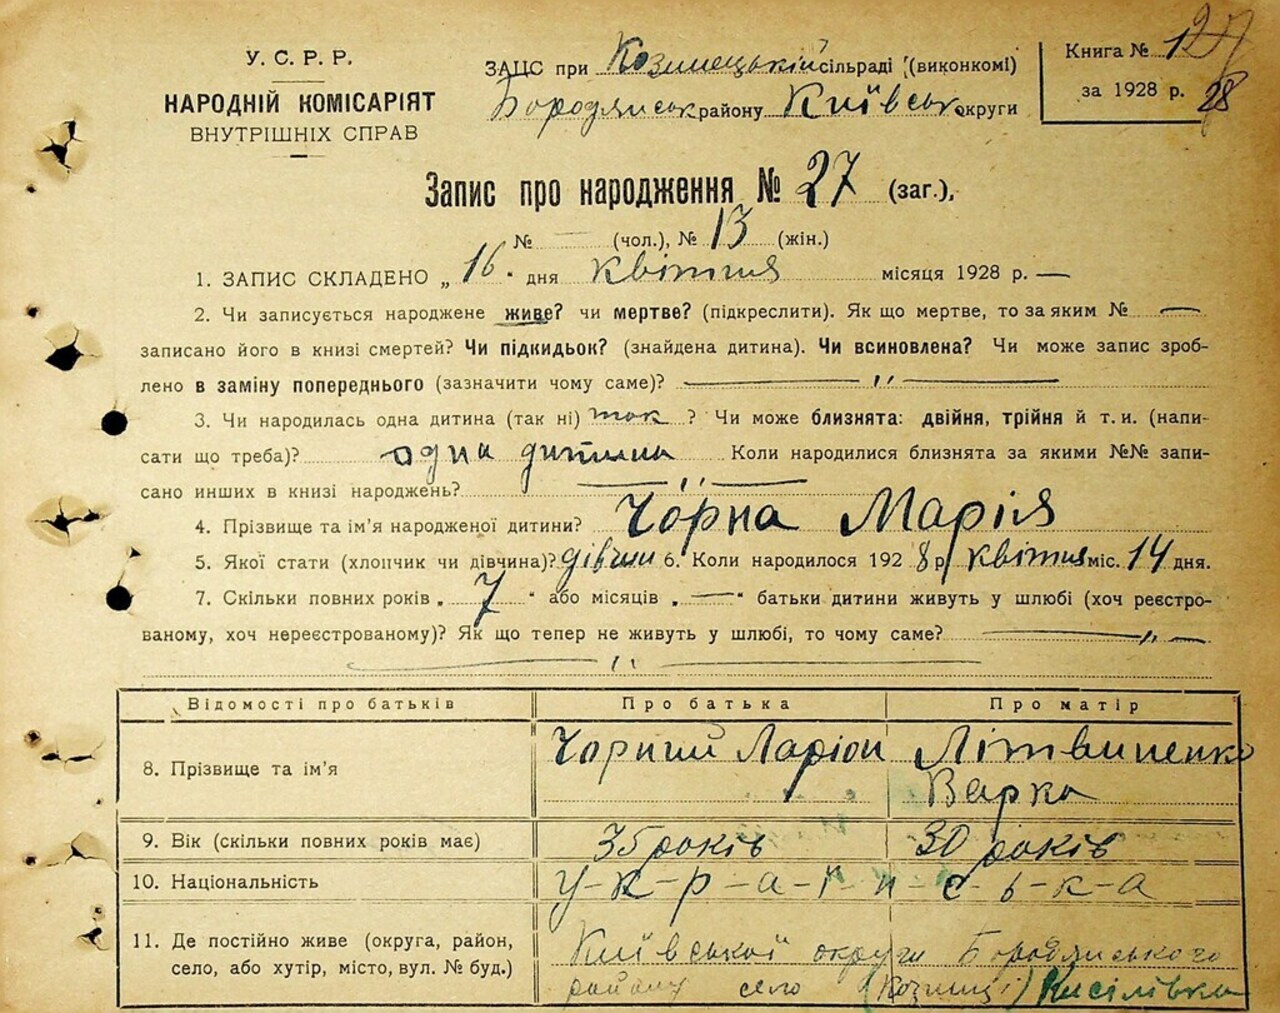 У. С. Р. Р.
НАРОДНІЙ КОМІСАРІЯТ
ВНУТРІШНІХ СПРАВ
ЗАЦС при сільраді (виконкомі)
Бородянськ району Київськ округи
Книга № 1
за 1928 р.
27
28
Запис про народження № 27 (заг.),
№ — (чол.), № 13 (жін.)
1. ЗАПИС СКЛАДЕНО „ 16 " дня квітня місяця 1928 р. —
2. Чи записується народжене живе? чи мертве? (підкреслити). Як що мертве, то за яким № —
записано його в книзі смертей? Чи підкидьок? (знайдена дитина). Чи всиновлена? Чи може запис зроб-
лено в заміну попереднього (зазначити чому саме)? — " —
3. Чи народилась одна дитина (так ні) так ? Чи може близнята: двійня, трійня й т. и. (напи-
сати що треба)? одна дитина Коли народилися близнята за якими №№ запи-
сано инших в книзі народжень? — " —
4. Прізвище та ім'я народженої дитини? Чорна Марія
5. Якої стати (хлопчик чи дівчина)? дівчин 6. Коли народилося 192 8 р. квітня міс. 14 дня.
7. Скільки повних років „ 7 " або місяців „ — " батьки дитини живуть у шлюбі (хоч реєстро-
ваному, хоч нереєстрованому)? Як що тепер не живуть у шлюбі, то чому саме? — " —
— " —
Відомості про батьків Про батька Про матір
8. Прізвище та ім'я Чорний Ларіон Літвиненко
Варка
9. Вік (скільки повних років має) 35 років 30 років
10. Національність у-к-р-а-ї-н-с-ь-к-а
11. Де постійно живе (округа, район, Київської округи Бородянського
село, або хутір, місто, вул. № буд.) району село Кисілівка